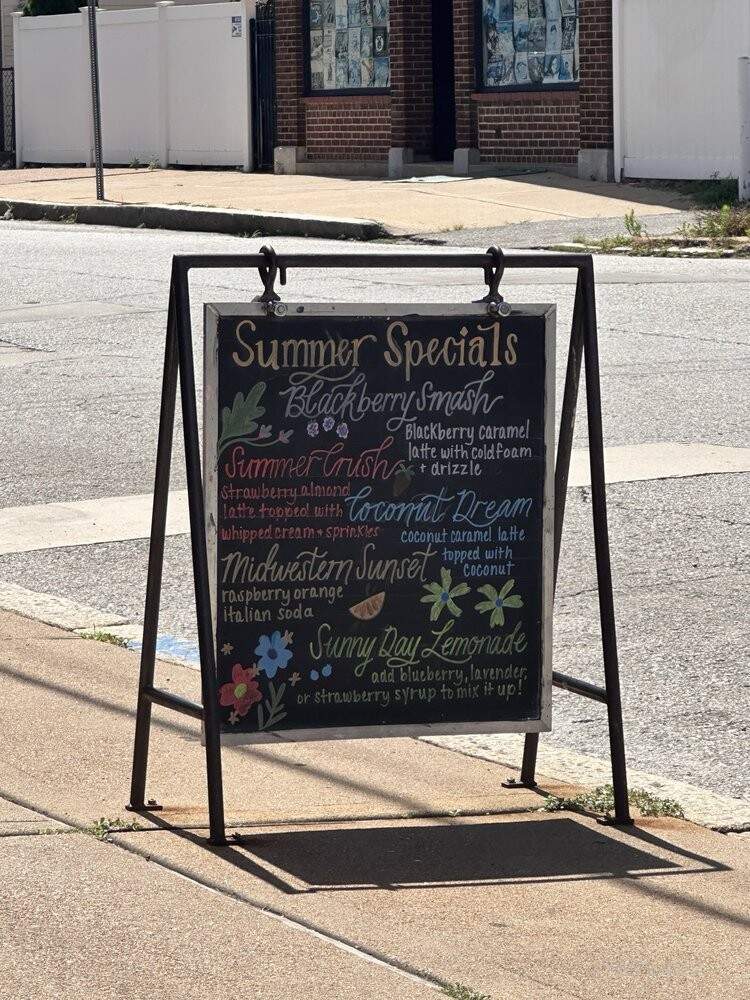 Summer Specials
Blackberry Smash
Blackberry caramel
latte with cold foam
+ drizzle
Summer Crush
strawberry almond
latte topped with
whipped cream + sprinkles
Coconut Dream
coconut caramel latte
topped with
coconut
Midwestern Sunset
raspberry orange
italian soda
Sunny Day Lemonade
add blueberry, lavender,
or strawberry syrup to mix it up!